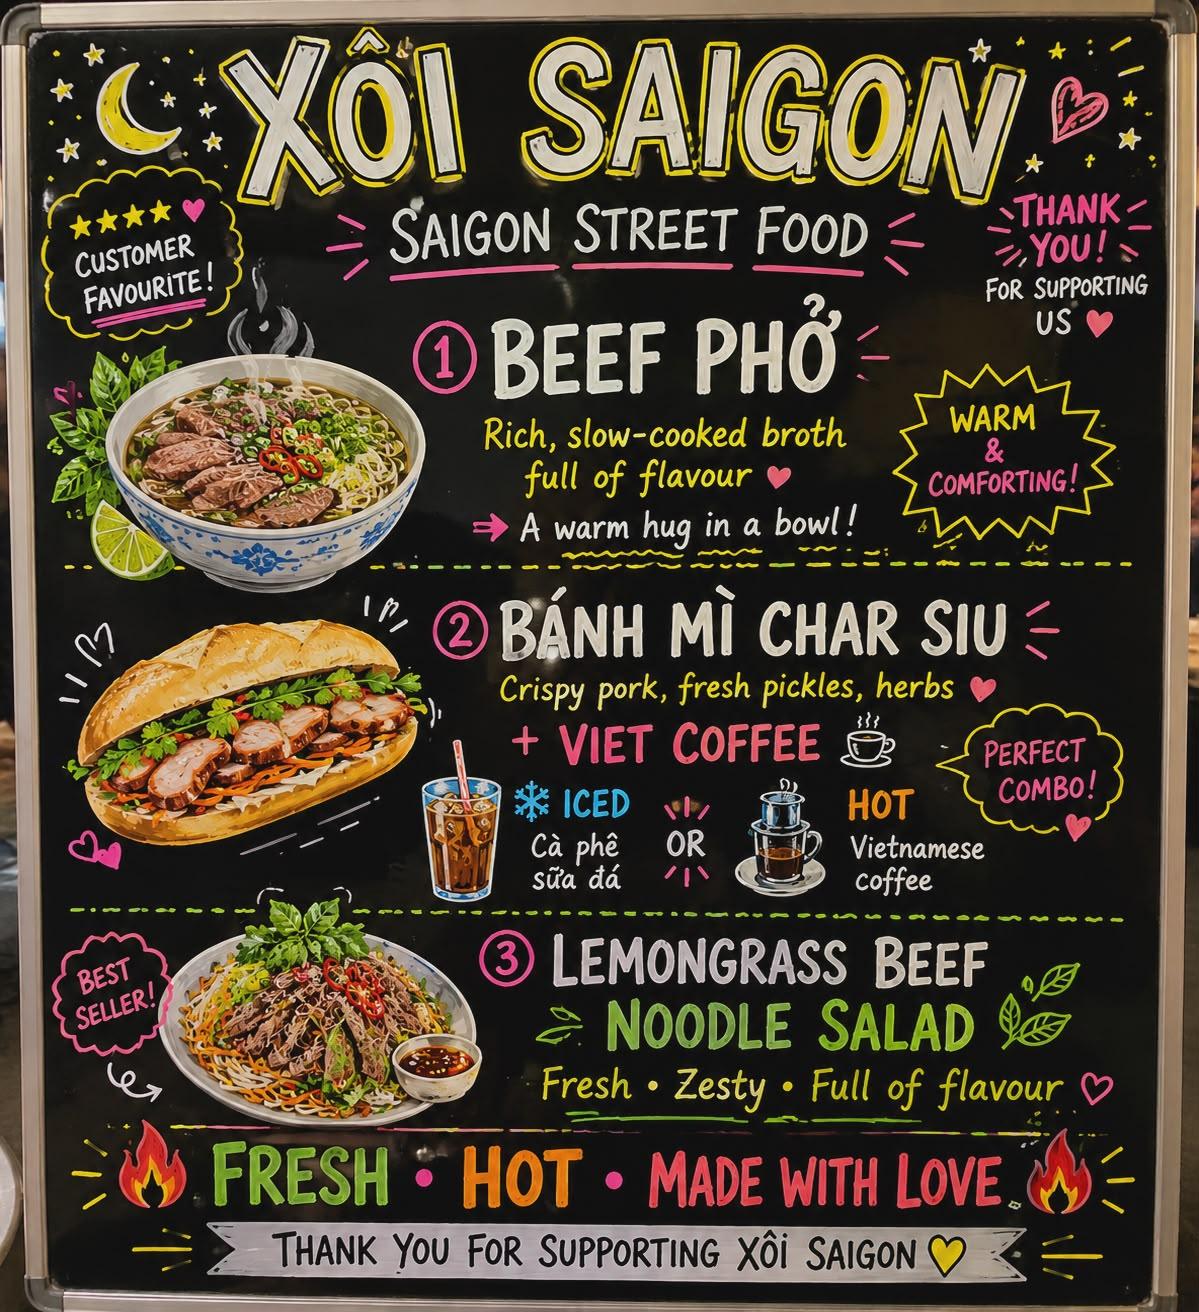 XÔI SAIGON
SAIGON STREET FOOD
CUSTOMER
FAVOURITE!
THANK
YOU!
FOR SUPPORTING
US
1 BEEF PHỞ
Rich, slow-cooked broth
full of flavour
A warm hug in a bowl!
WARM
&
COMFORTING!
2 BÁNH MÌ CHAR SIU
Crispy pork, fresh pickles, herbs
+ VIET COFFEE
PERFECT
COMBO!
ICED
Cà phê
sữa đá
OR
HOT
Vietnamese
coffee
BEST
SELLER!
3 LEMONGRASS BEEF
NOODLE SALAD
Fresh • Zesty • Full of flavour
FRESH • HOT • MADE WITH LOVE
THANK YOU FOR SUPPORTING XÔI SAIGON